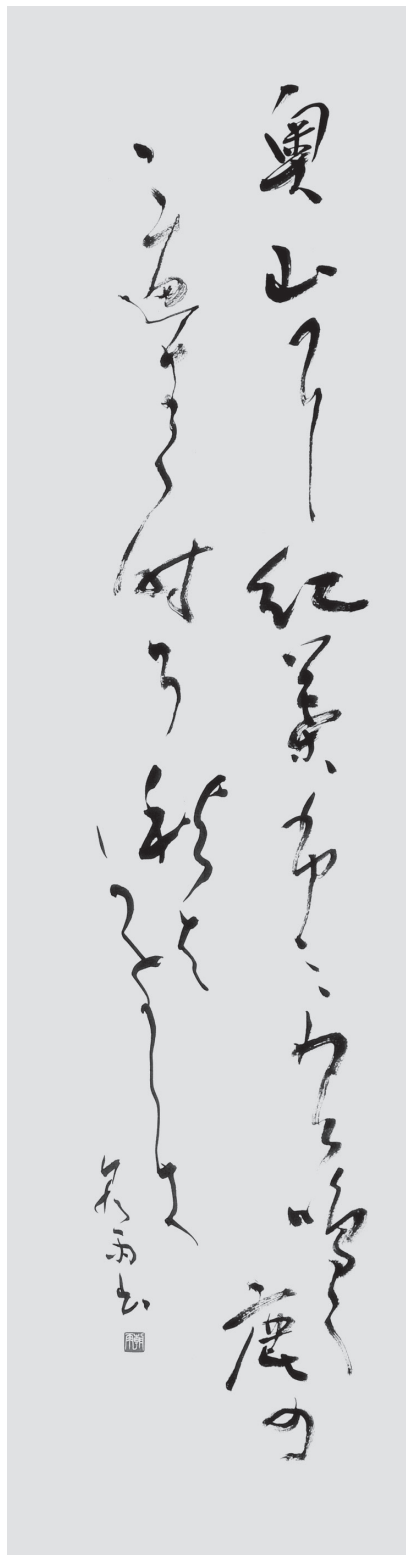 奥山に紅葉ふみわけ鳴く鹿の
こゑきく時そ秋はかなしき
書